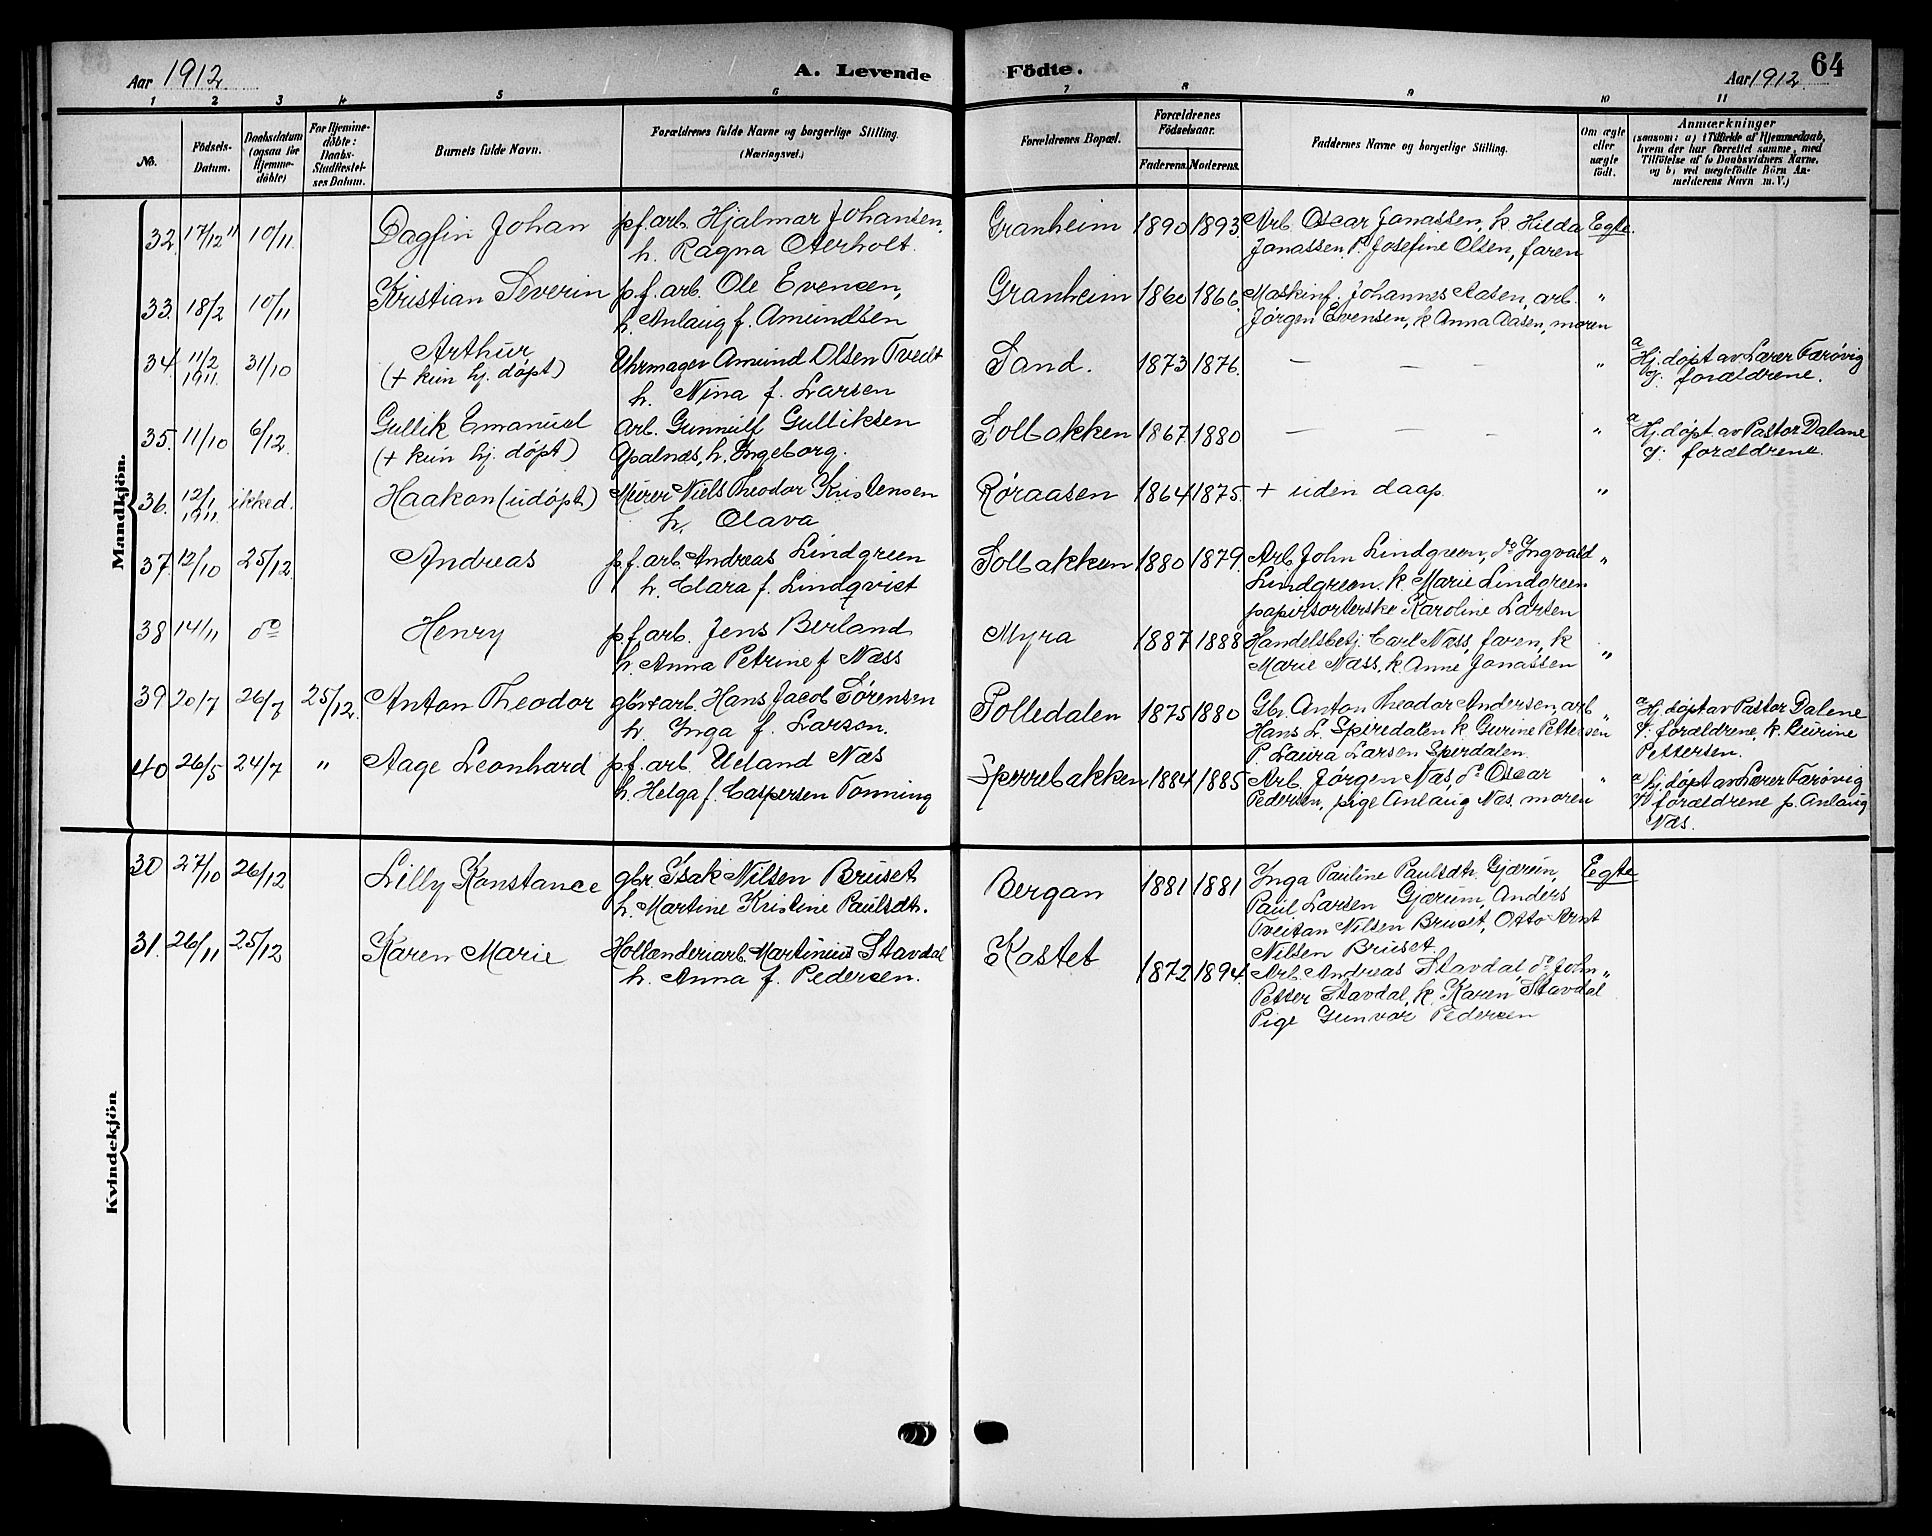 Aar 1912
A. Levende
Födte.
Aar 1912
64
1 2 3 4 5 6 7 8 9 10 11
No.
Födsels-
Datum.
Daabsdatum
(ogsaa for
Hjemme-
döbte)
For Hjemme-
döbte:
Daabs-
Stadfæstel-
ses Datum.
Barnets fulde Navn.
Forældrenes fulde Navne og borgerlige Stilling.
(Næringsvei.)
Forældrenes Bopæl.
Forældrenes
Födselsaar.
Faderens. Moderens.
Faddernes Navne og borgerlige Stilling.
Om ægte
eller
uægte
født.
Anmærkninger
(saasom: a) i Tilfælde af Hjemmedaab,
hvem der har forrettet samme, med
Tilföielse af to Daabsvidners Navne,
og b) ved uægtefödte Börn An-
melderens Navn m. V.)
Mandkjön.
32. 17/12 11 10/11. Dagfin Johan p.f.arb. Hjalmar Johansen, Granheim 1890 1893 Arb. Oscar Jonassen, k Hilda Egte.
h. Ragna Aterholt. Jonassen. P. Josefine Olsen, faren
33. 18/2 10/11 Kristian Severin p.f.arb. Ole Evensen, Granheim 1860 1866 Maskinf. Johannes Aasen, arb. "
h. Anlaug f. Amundsen Jørgen Evensen, k Anna Aasen, moren
34. 11/2 1911. 31/10 Arthur Uhrmager Amund Olsen Tvedt Sand. 1873 1876. — — — " a Hj. døpt av Lærer Færøvig
(+ kun hj. døpt) h. Nina f. Larsen forældrene.
35. 11/10 6/12. Gullik Emanuel Arb. Gunnulf Gulliksen Solbakken 1867 1880 — — — " a Hj. døpt av Pastor Dalane
(+ kun hj. døpt) Apalnæs, h. Ingeborg. forældrene.
36. 12/1 1911. ikke d. Haakon (udøpt) Murer Niels Theodor Kristensen Røraasen 1864 1875 + uden daap. "
h. Olava
37. 12/10 25/12 Andreas p.f.arb. Andreas Lindgreen Solbakken 1880 1879. Arb. John Lindgreen, do Ingvald "
h. Clara f. Lindqvist Lindgreen. k Marie Lindgreen
papirsorterske Karoline Larsen
38 14/11 do Henry p.f.arb. Jens Berland Myra 1887 1888 Handelsbetj. Carl Næss, faren, k "
h. Anna Petrine f Næss Marie Næss, k Anne Jonassen
39 20/7 26/7 25/12. Anton Theodor gbr+arb. Hans Jacob Sørensen Polledalen 1875 1880 Gbr. Anton Theodor Andersen, arb " a Hj. døpt av Pastor Dalene
h. Inga f. Larson. Hans L. Speredalen k. Gurine Pettersen forældrene, k. Gurine
P. Laura Larsen Sperdalen. Pettersen.
40 26/5 24/7 " Aage Leonhard p.f.arb Ueland Næs Sperrebakken 1884 1885 Arb. Jørgen Næs, do Oscar " a hj. døpt av Lærer Færøvig
h. Helga f. Caspersen Tonning Pedersen, pige Anlaug Næs, moren forældrene p. Anlaug
Næs.
Kvindekjön
30 27/10 26/12 Lilly Konstance gbr. Isak Nilsen Bruset Bergan 1881 1881 Inga Pauline Paulsdtr. Gjærum, Egte
h. Martine Kristine Paulsdtr. Paul Larsen Gjærum, Anders
Tveitan Nilsen Bruset, Otto Arnt
Nilsen Bruset.
31. 26/11 25/12 Karen Marie Hollænderiarb. Martinius Stavdal Kastet 1872 1894. Arb. Andreas Stavdal, do John "
h. Anna f. Pedersen. Petter Stavdal, k. Karen Stavdal
Pige Gunvor Pedersen